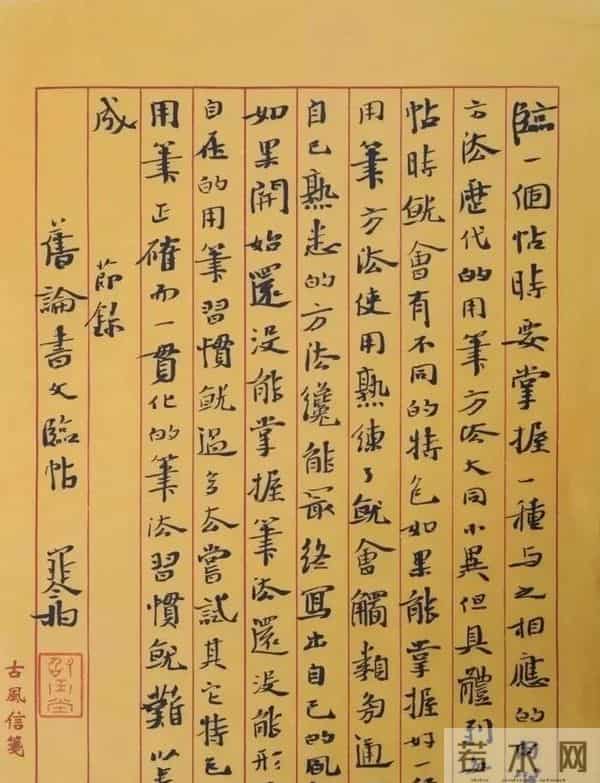 臨一個帖時要掌握一種与之相應的用
方法歷代的用筆方法大同小異但具體到
帖時就會有不同的特色如果能掌握好一
用筆方法使用熟練了就會觸類旁通
自己熟悉的方法纔能最終寫出自己的風
如果開始還没能掌握筆法還没能形
自在的用筆習慣就過多去嘗試其它特色
用筆正確而一貫化的筆法習慣就難以養
成 節錄
舊論書文臨帖
古風信箋
若水网